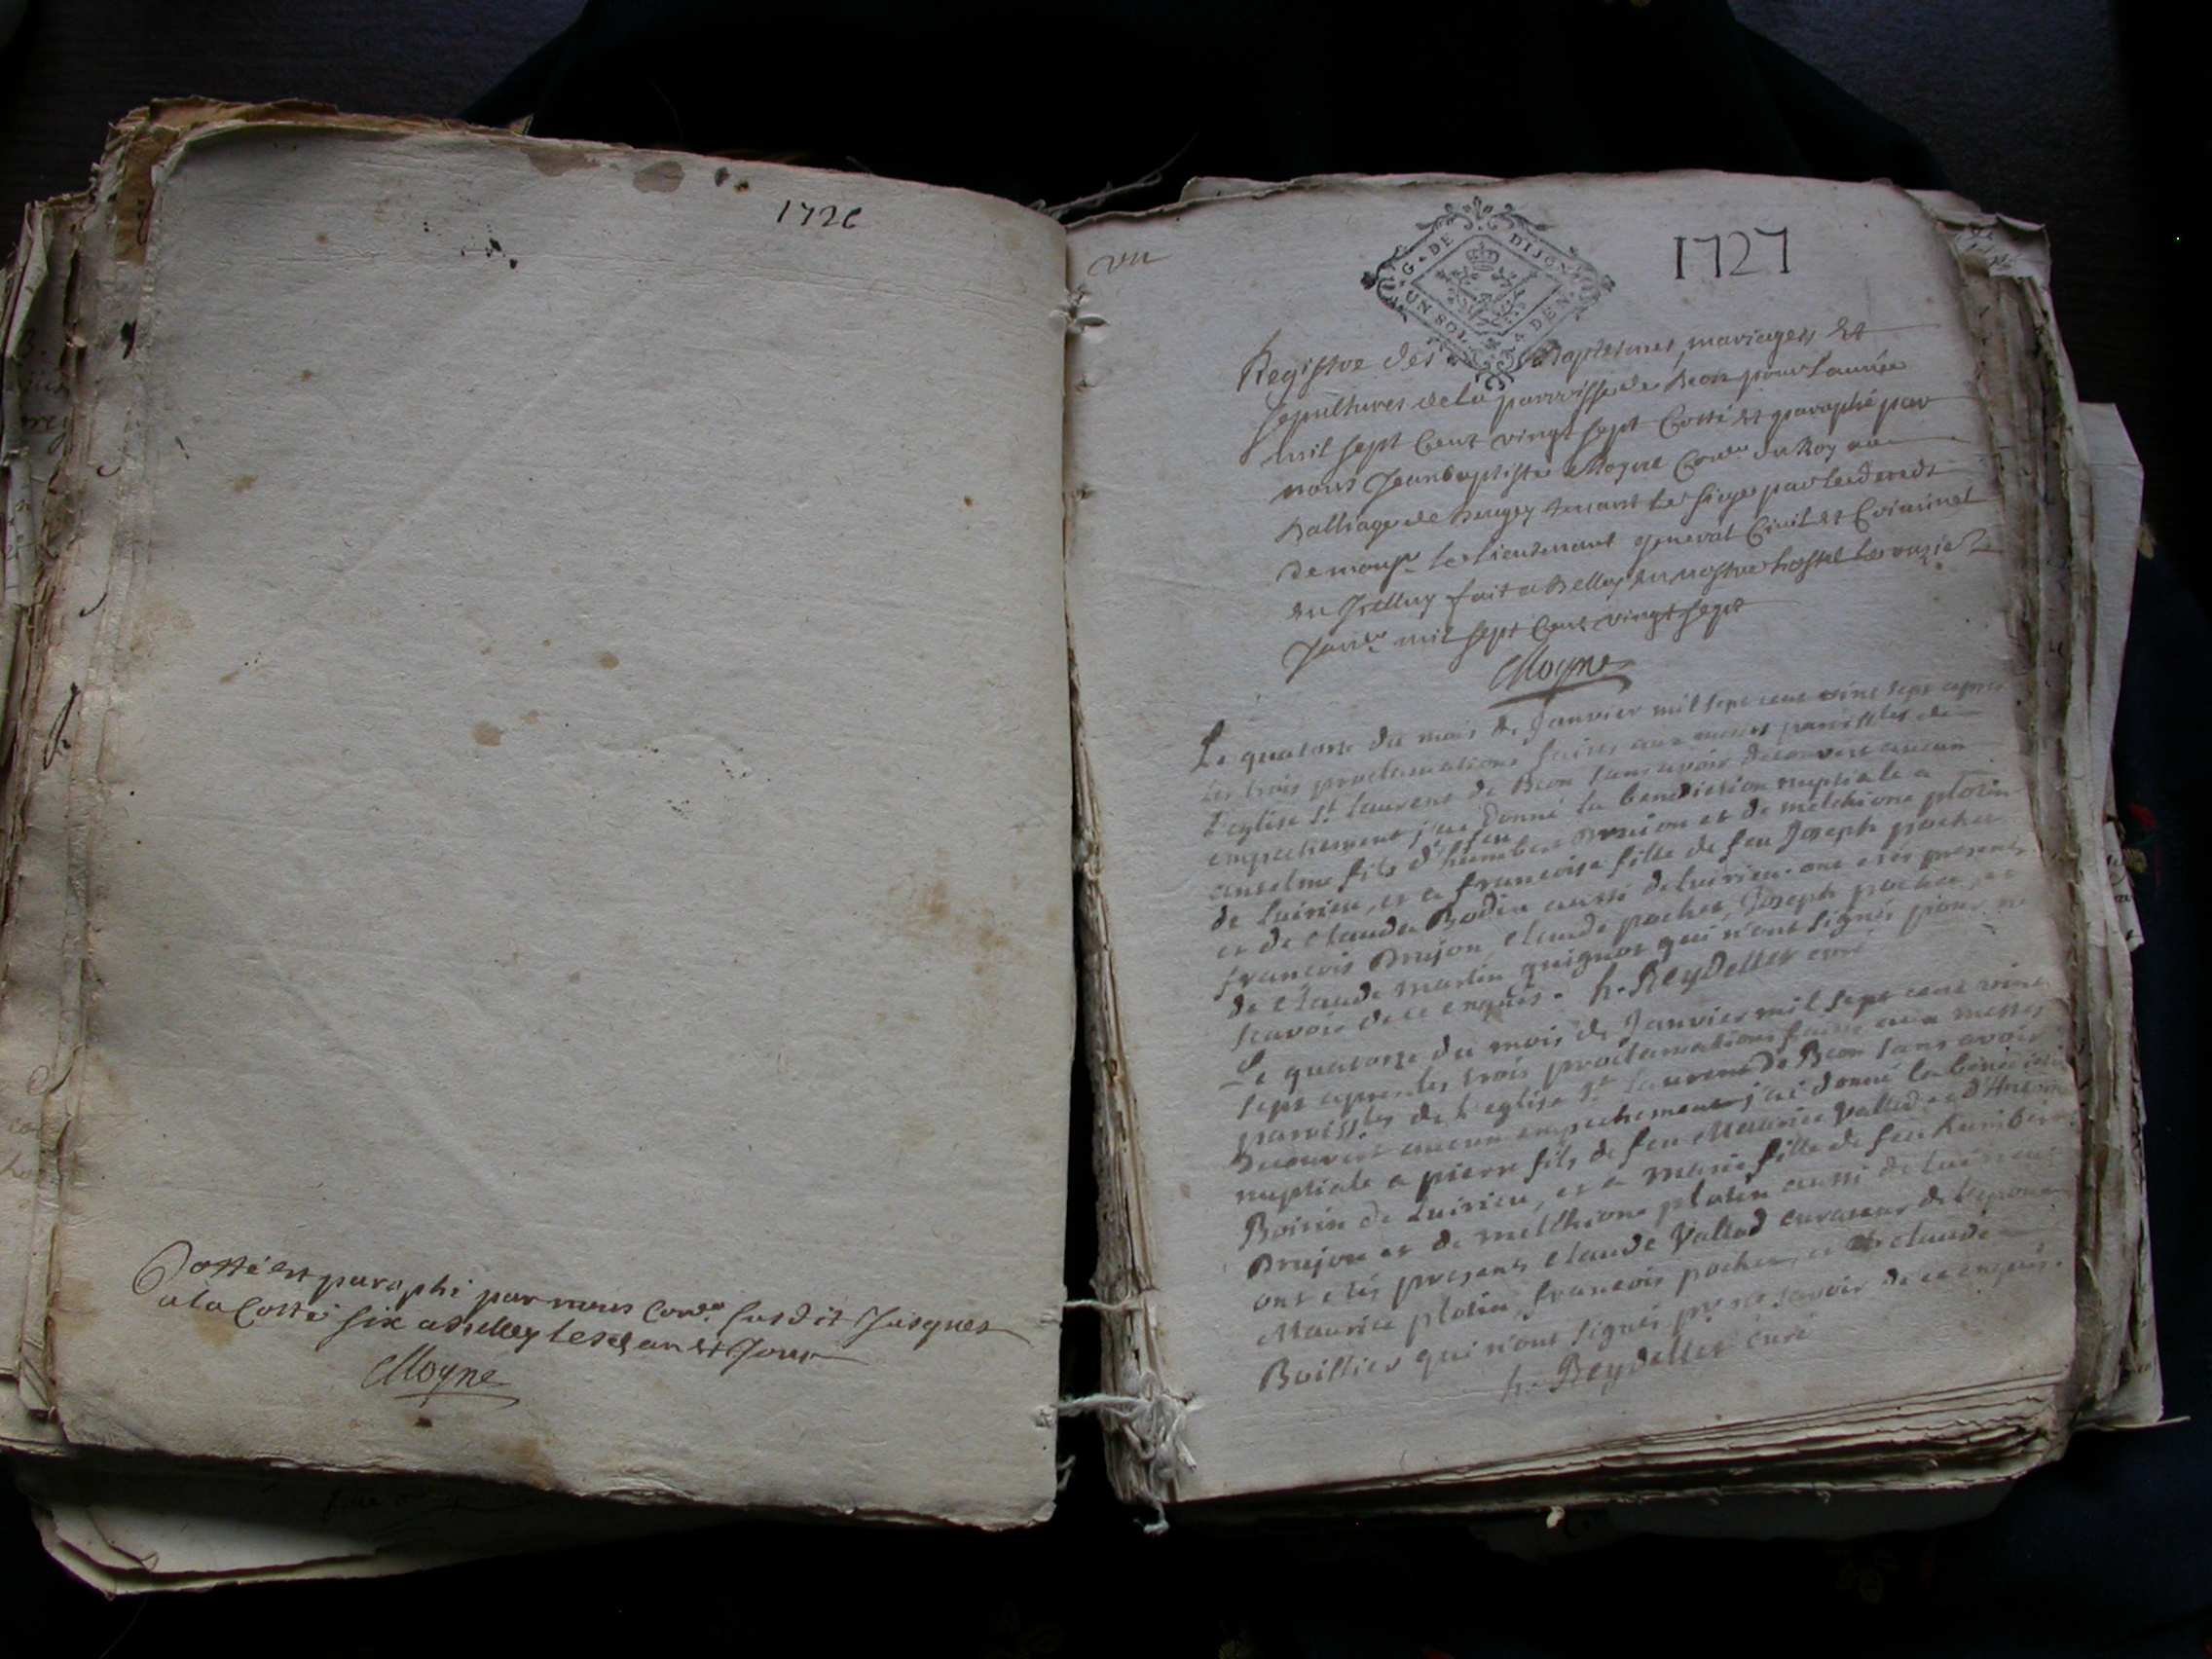 1726
Cotté et paraphé par nous Coner. susdit Jusques
a la Cotte six a Belley les dt an et Jour
Moyne
vu
1727
G. DE DIJON
UN SOL. 4 DEN.
Registre des Baptesmes, mariages et
sepultures de la parroisse de Beon pour l'année
mil sept Cent vingt sept Cotté et paraphé par
nous Jean baptiste Moyne Coner. du Roy au
Balliage de Beugey tenant le siege par
de monsr. le Lieutenant general Civil et Criminel
au fait a Belley en nostre hostel le
Janer. mil sept Cent vingt sept
Moyne
Le quatorze du mois de Janvier mil sept cent vint sept apres
les trois proclamations faites aux messes paroissles de
L'eglise St. Laurent de Beon sans avoir decouvert aucun
empechement j'ai donné la benediction nuptiale a
anselme fils d'feu humbert Brujon et de melchione plotin
de Luirieu, et a francoise fille de feu Joseph pochet
et de claude Bodin aussi de Luirieu. ont etés presents
francois Brujon, claude pochet, Joseph pochet, et
de claude martin guignot qui n'ont signés pour ne
scavoir de ce enquis. h. Reydellet curé
Le quatorze du mois de Janvier mil sept cent vint
sept apres les trois proclamations faites aux messes
paroissles de L'eglise St Laurent de Beon sans avoir
decouvert aucun empechement j'ai donné la benediction
nuptiale a pierre fils de feu Maurice Vallod et d'
Boisin de Luirieu, et a Marie fille de feu humbert
Brujon et de melchione plotin aussi de Luirieu
ont etés presents claude Vallod curateur de l'epoux
Maurice plotin, francois pochet, et claude
Boillier qui n'ont signés pr ne savoir de ce enquis.
h. Reydellet curé